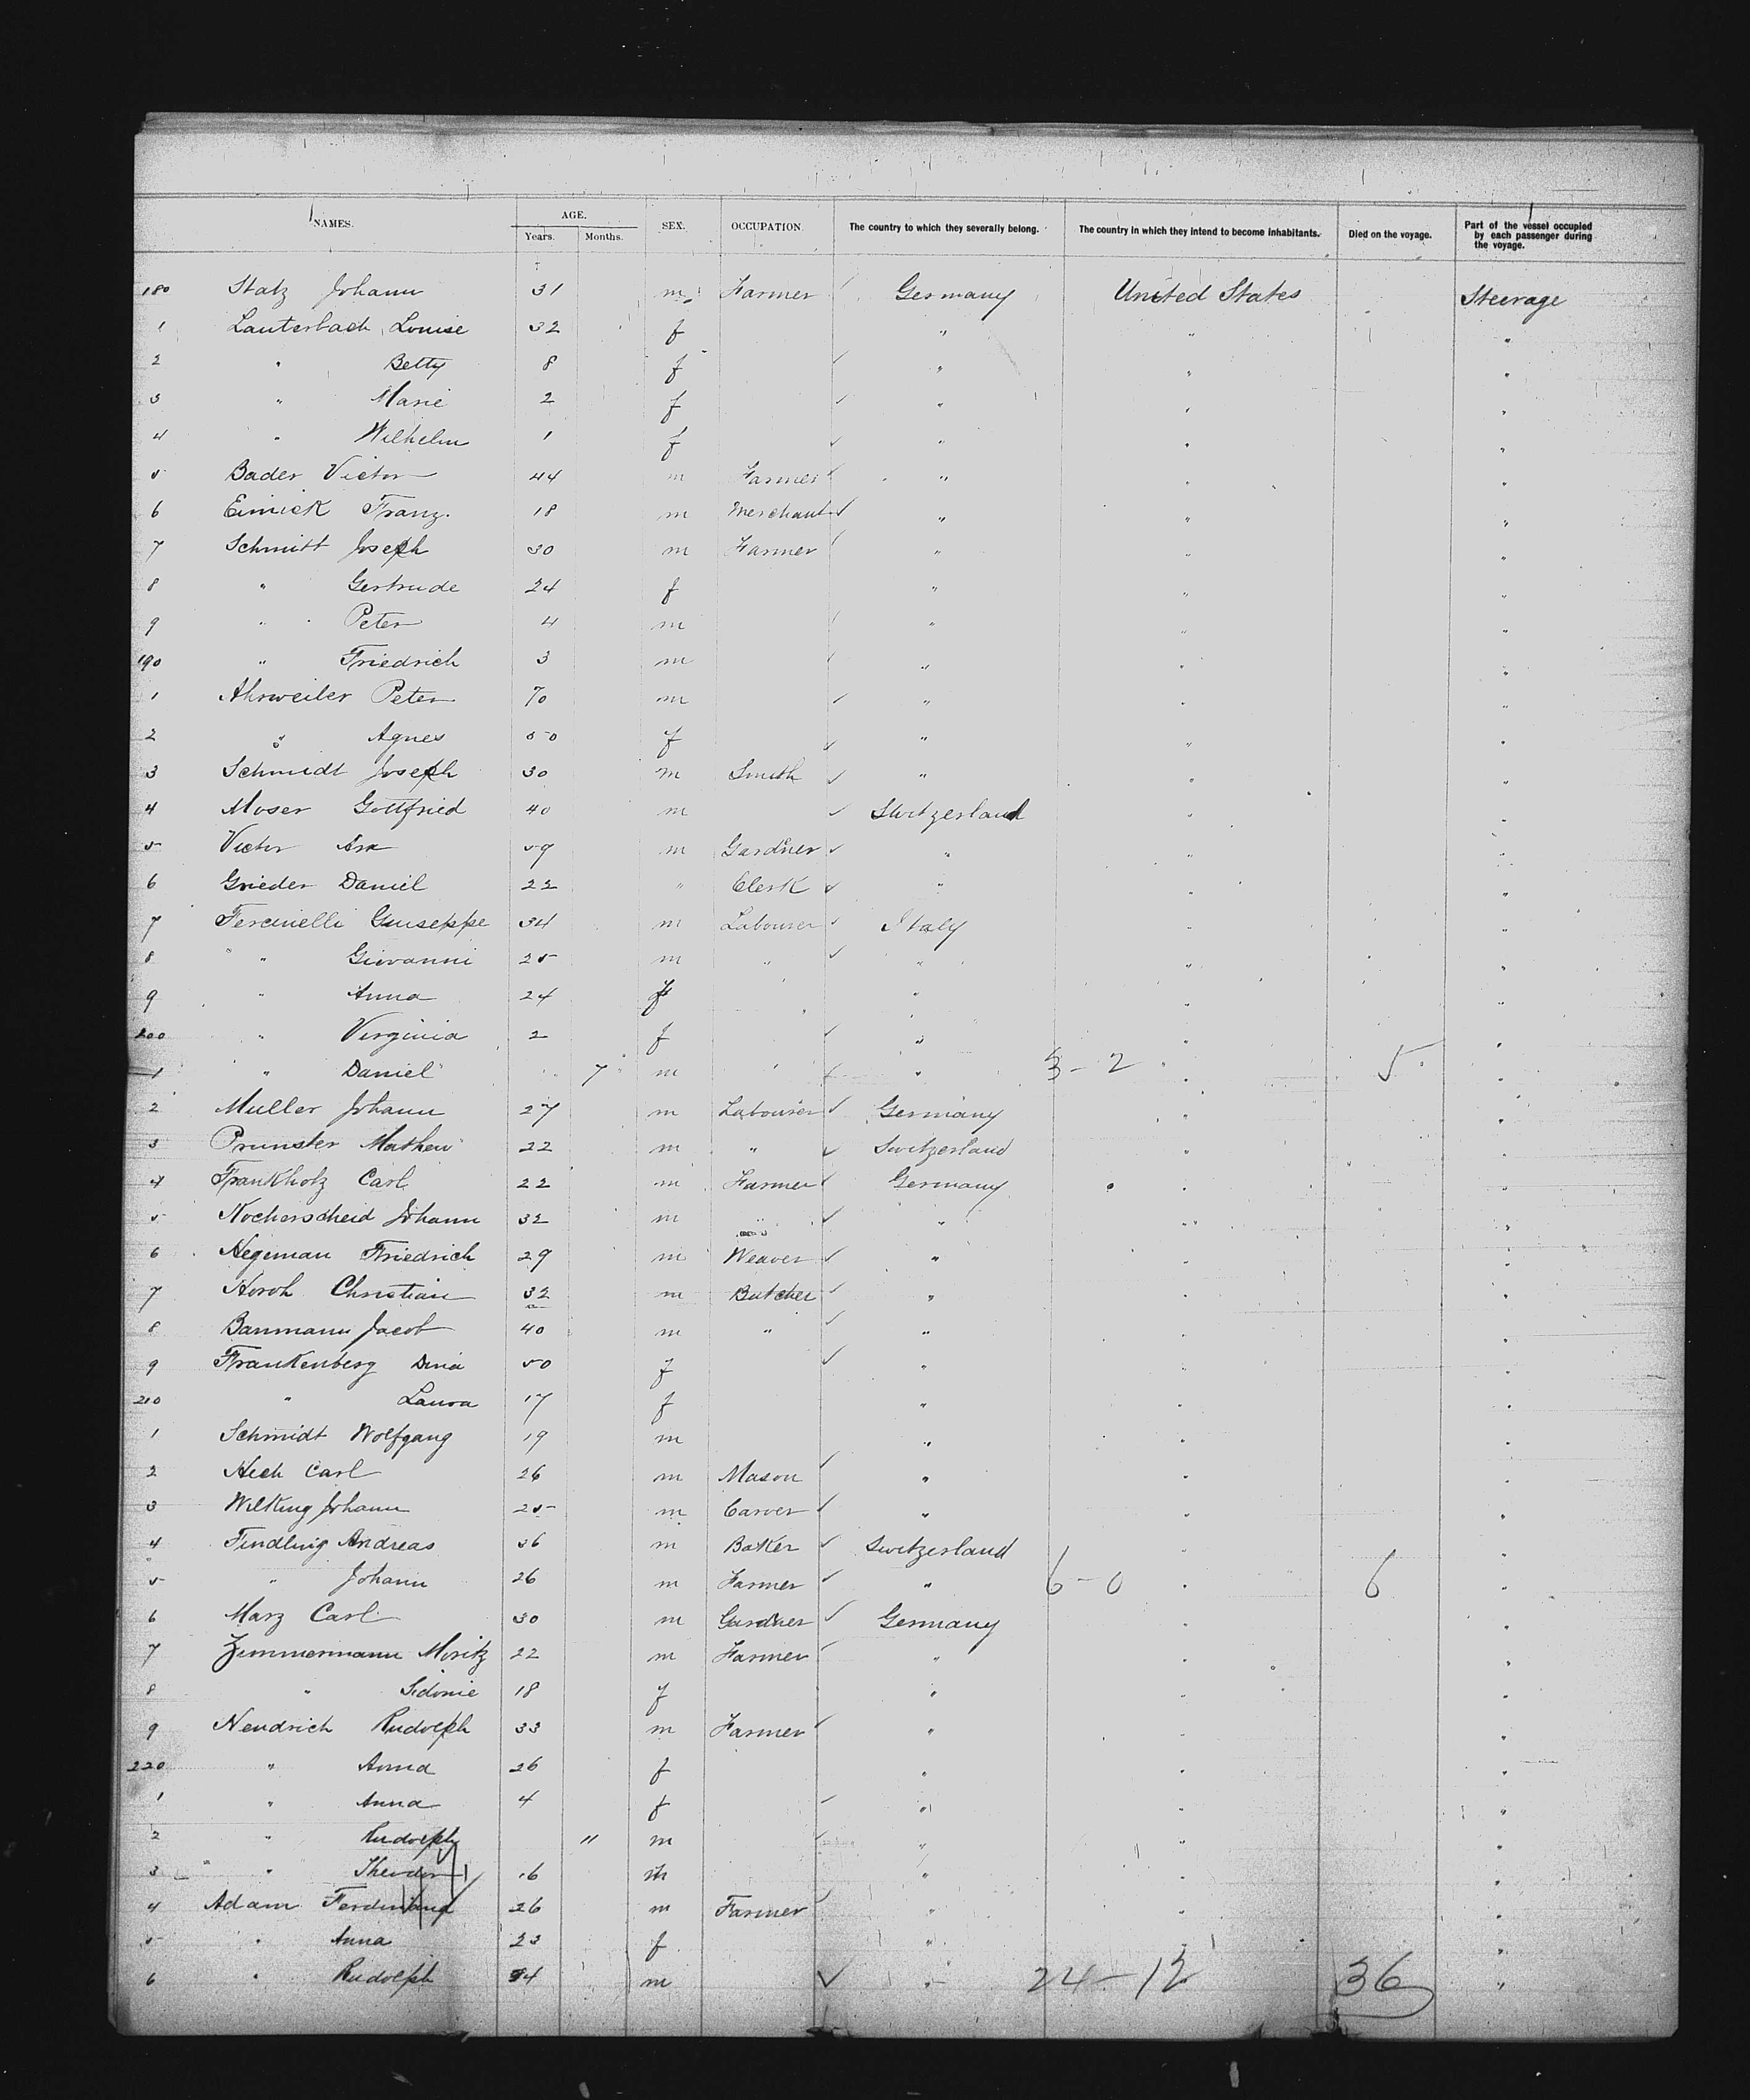 NAMES. AGE. SEX. OCCUPATION. The country to which they severally belong. The country in which they intend to become inhabitants. Died on the voyage. Part of the vessel occupied by each passenger during the voyage.
Years. Months.
180 Statz Johann 31 m Farmer Germany United States Steerage
1 Lauterbach Louise 32 f " " "
2 " Betty 8 f " " "
3 " Marie 2 f " " "
4 " Wilhelm 1 f " " "
5 Bader Victor 44 m Farmer " " "
6 Eimick Franz. 18 m Merchant " " "
7 Schmitt Joseph 30 m Farmer " " "
8 " Gertrude 24 f " " "
9 " Peter 4 m " " "
190 " Friedrich 3 m " " "
1 Ahrweiler Peter 70 m " " "
2 " Agnes 50 f " " "
3 Schmidt Joseph 30 m Smith " " "
4 Moser Gottfried 40 m Switzerland " "
5 Victor 59 m Gardner " " "
6 Grieder Daniel 22 " Clerk " " "
7 Fercinelli Guiseppe 34 m Labourer Italy " "
8 " Giovanni 25 m " " " "
9 " Anna 24 f " " "
200 " Virginia 2 f " " "
1 " Daniel 7 m " 3-2 " 5 "
2 Muller Johann 27 m Labourer Germany " "
3 Prunster Mathew 22 m " Switzerland " "
4 Frankholz Carl 22 m Farmer Germany " "
5 Nocherscheid Johann 32 m " " " "
6 Hegeman Friedrich 29 m Weaver " " "
7 Horoh Christian 32 m Butcher " " "
8 Banmann Jacob 40 m " " " "
9 Frankenberg Dina 50 f " " "
210 " Laura 17 f " " "
1 Schmidt Wolfgang 19 m " " "
2 Hech Carl 26 m Mason " " "
3 Wilking Johann 25 m Carver " " "
4 Findling Andreas 36 m Baker Switzerland " "
5 " Johann 26 m Farmer " 6-0 " 6 "
6 Marz Carl 30 m Gardner Germany " "
7 Zimmermann Moritz 22 m Farmer " " "
8 " Sidonie 18 f " " "
9 Nendrich Rudolph 33 m Farmer " " "
220 " Anna 26 f " " "
1 " Anna 4 f " " "
2 " Rudolph 11 m " " "
3 " Theodor 16 m " " "
4 Adam Ferdinand 26 m Farmer " " "
5 " Anna 23 f " " "
6 " Rudolph 4 m " 24-12 " 36 "